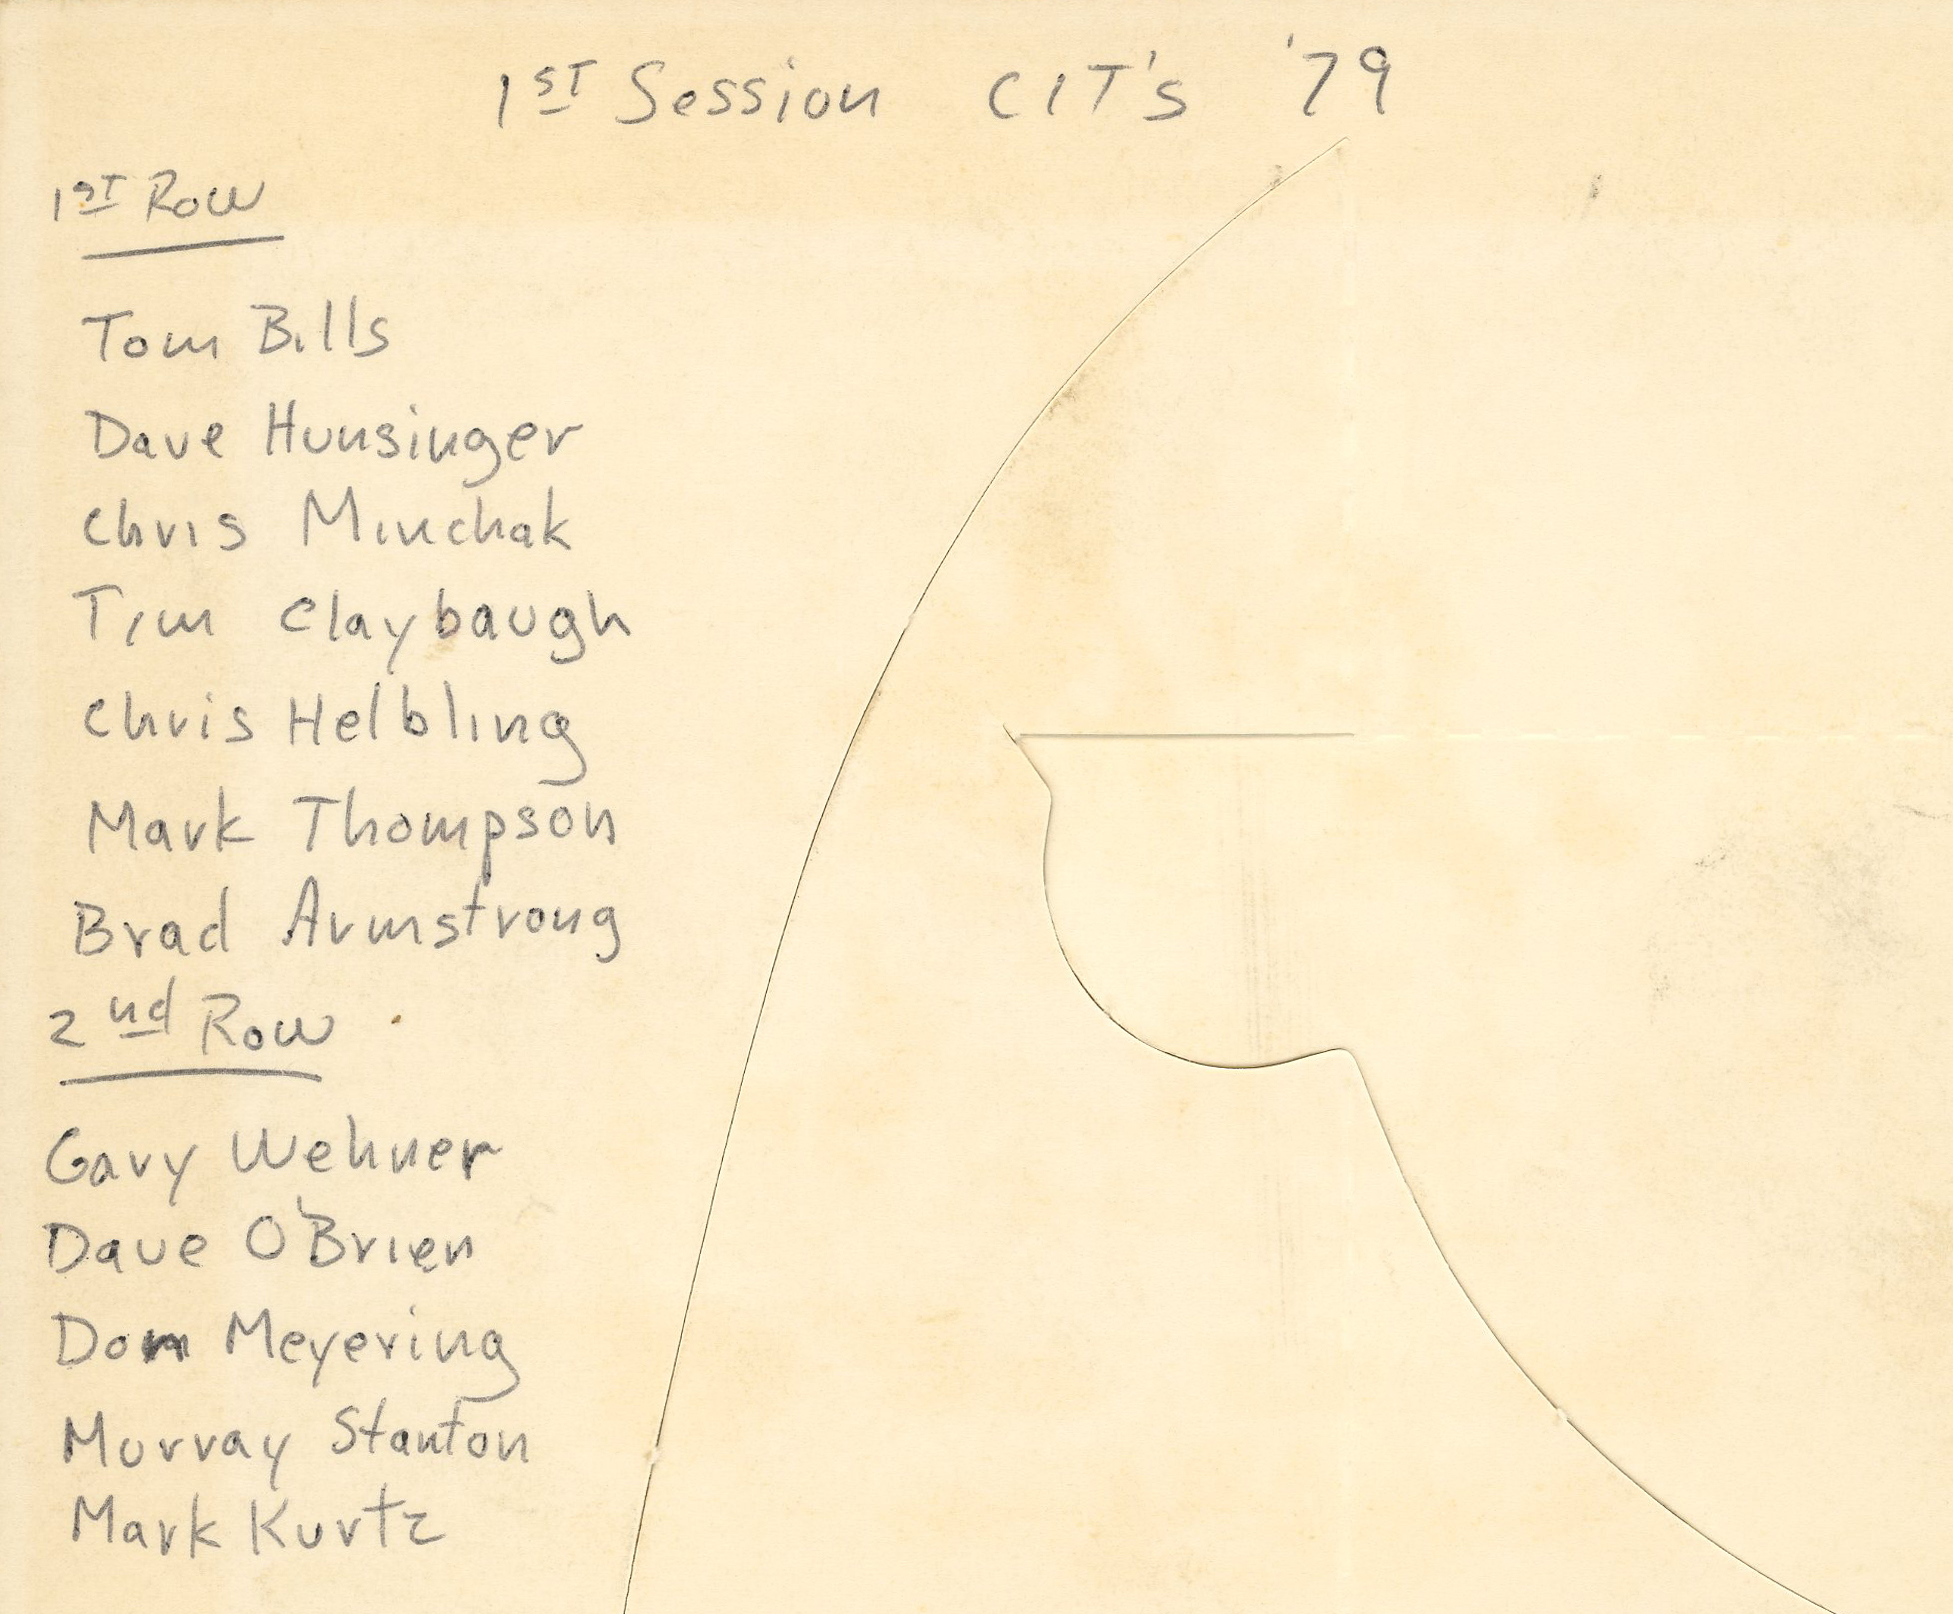 1ST Session CIT's '79
1ST Row
Tom Bills
Dave Hunsinger
Chris Minchak
Tim Claybaugh
Chris Helbling
Mark Thompson
Brad Armstrong
2nd Row
Gary Wehner
Dave O'Brien
Dom Meyering
Murray Stanton
Mark Kurtz